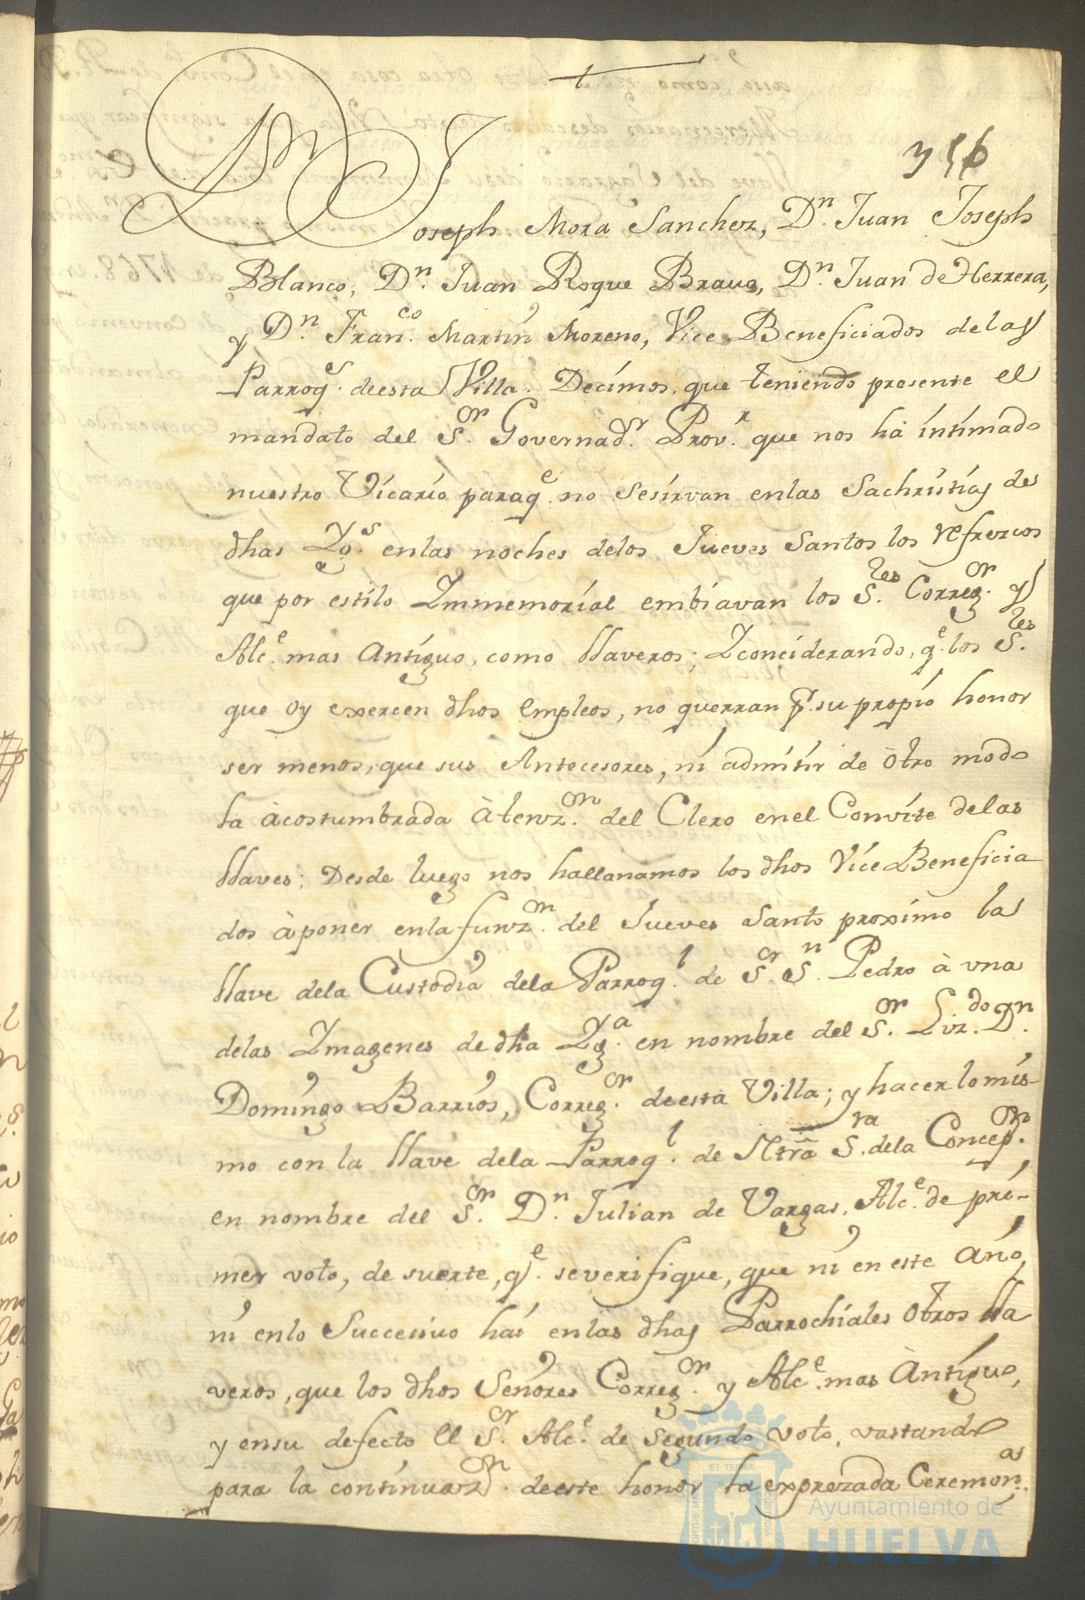 +
356
Dn. Joseph Mora Sanchez, Dn. Juan Joseph
Blanco, Dn. Juan Roque Bravo, Dn. Juan de Herrera,
y Dn. Franco. Martin Moreno, Vice-Beneficiados de las
Parroqs. de esta Villa. Decimos, que teniendo presente el
mandato del Sor. Governadr. Provr. que nos há intimado
nuestro Vicario paraqe. no se sirvan en las Sachristias de
dhas Ygs. en las noches de los Jueves Santos los refrezcos
que por estilo Ymmemorial embiavan los Sres. Corregor. y
Alce. mas Antiguo, como llaveros; Y conciderando, qe. los Sres.
que oy exercen dhos empleos, no querran pr. su propio honor
ser menos, que sus Antecesores, ni admitir de otro modo
la àcostumbrada àtenzon. del Clero en el Convite de las
llaves: Desde luego nos hallanamos los dhos Vice-Beneficia
dos à poner en la funzon. del Jueves Santo proximo la
llave de la Custodia de la Parroql. de Sor. Sn. Pedro à una
de las Ymagenes de dha Yga. en nombre del Sor. Lizdo. Dn.
Domingo Barrios, Corregor. de esta Villa; y hacer lo mis-
mo con la llave de la Parroql. de Ntrã Sra. de la Concepon.
en nombre del Sor. Dn. Julian de Vargas, Alce. de pri-
mer voto, de suerte, qe. se verifique, que ni en este Año,
ni en lo Succesivo hai en las dhas Parrochiales otros lla
veros, que los dhos Señores Corregor. y Alce. mas Antiguo,
y en su defecto el Sor. Alce. de segundo voto, vastando
para la continuazon. de este honor la exprezada Ceremonas.
Ayuntamiento de
HUELVA